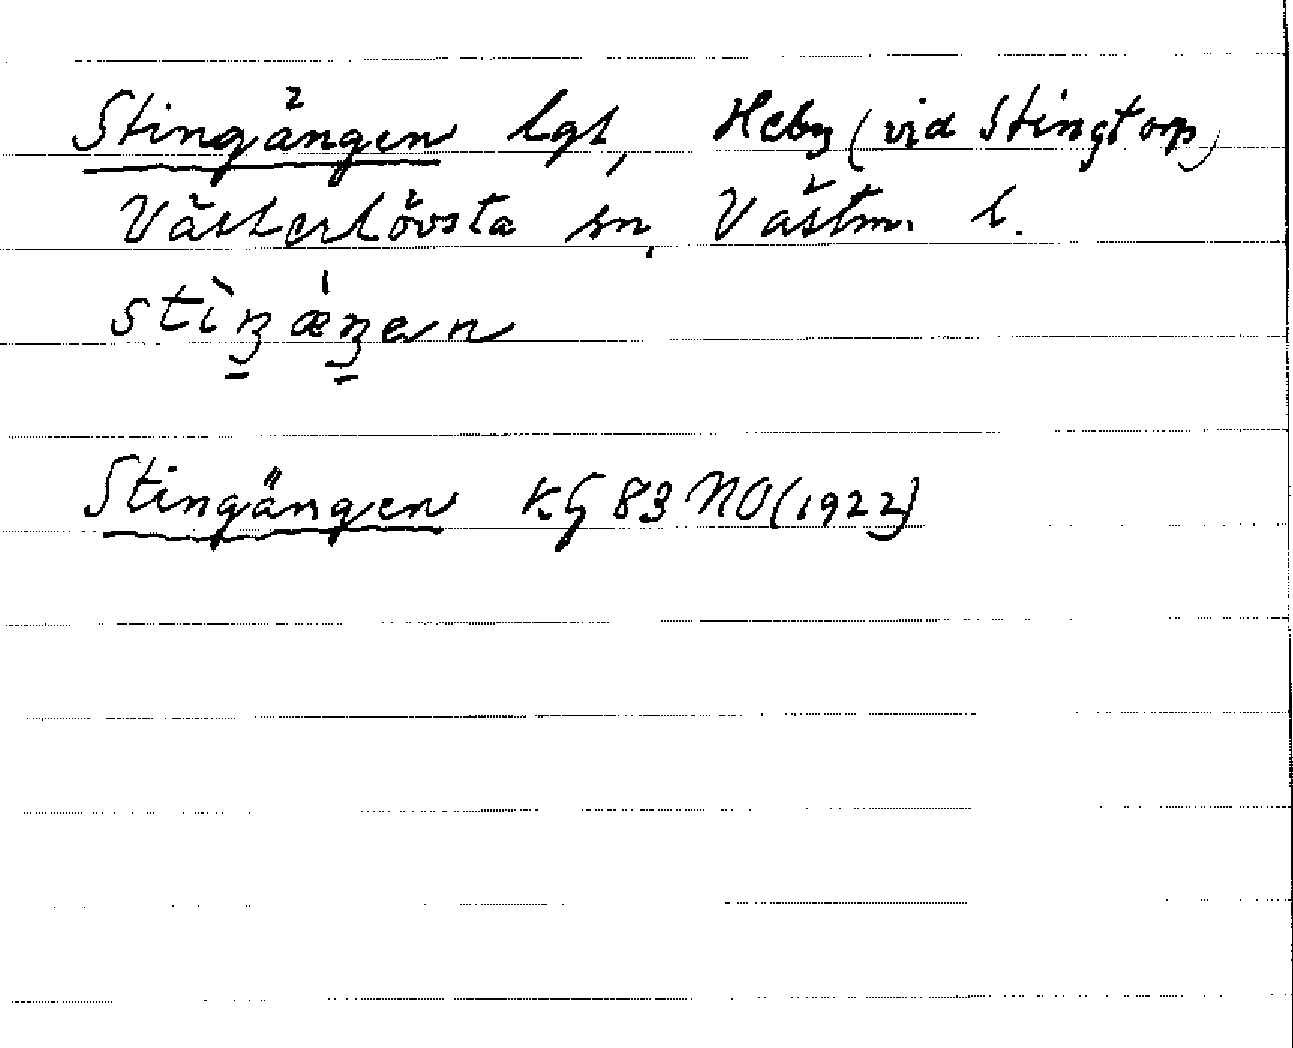 Stingängen lgt, Heby (vid Stingtorp)
Västerlövsta sn, Västm. l.
stìŋǽŋen
Stingängen KG 83 NO (1922)